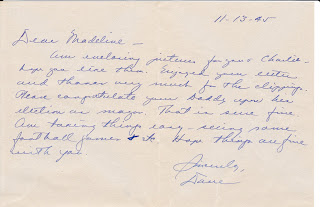 11-13-45
Dear Madeline —
Am enclosing pictures for you & Charlie -
hope you like them. Enjoyed your letter
and thanks very much for the clipping.
Please congratulate your Daddy upon his
election as mayor. That is sure fine.
Am taking things easy - seeing some
football games & etc. Hope things are fine
with you
Sincerely,